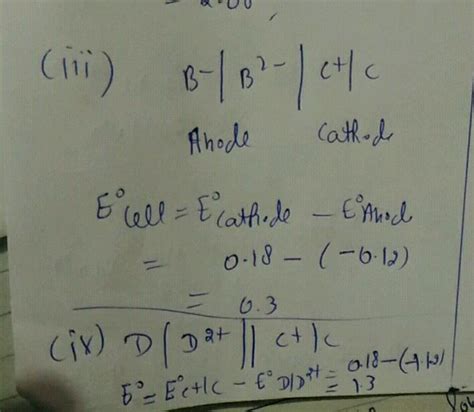 = 2.00
(iii) B-|B2-|C+|C
Anode Cathode
E°Cell = E°Cathode - E°Anod
= 0.18 - (-0.12)
= 0.3
(iv) D|D2+||C+|C
E° = E°C+|C - E°D|D2+ = 0.18-(-1.12)
= 1.3